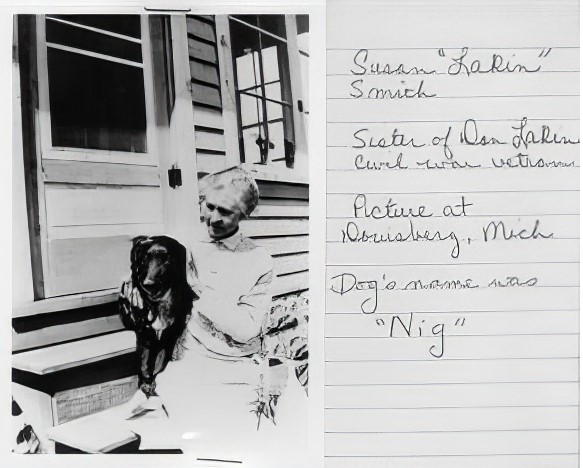 Susan "Lakin"
Smith
Sister of Don Lakin
Civil war vetrowm
Picture at
Douisberg, Mich
Dog's name was
"Nig"